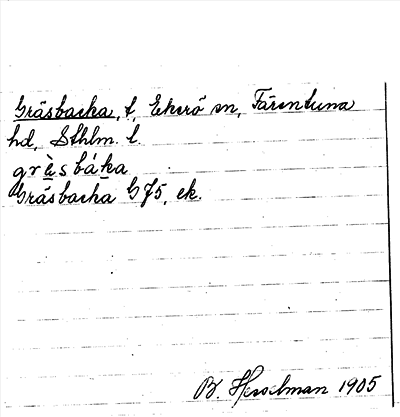 Gräsbacka, t, Ekerö sn, Färentuna
hd, Sthlm. l.
grèsbáka
Gräsbacka G 75, ek.
B. Hesselman 1905